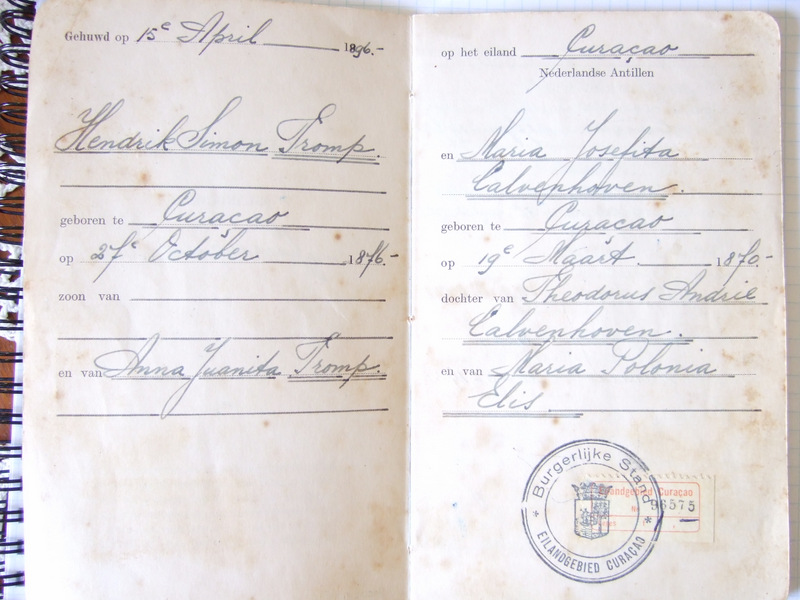 Gehuwd op 15e April 1896.-
Hendrik Simon Tromp.
geboren te Curacao
op 27e October 1876.-
zoon van
en van Anna Juanita Tromp.
op het eiland Curaçao
Nederlandse Antillen
en Maria Josefita
Calvenhoven.
geboren te Curacao
op 19e Maart 1870.-
dochter van Theodorus Andrie
Calvenhoven.
en van Maria Polonia
Elis
* Burgerlijke Stand *
EILANDGEBIED CURAÇAO
andgebied Curaçao
No 96575